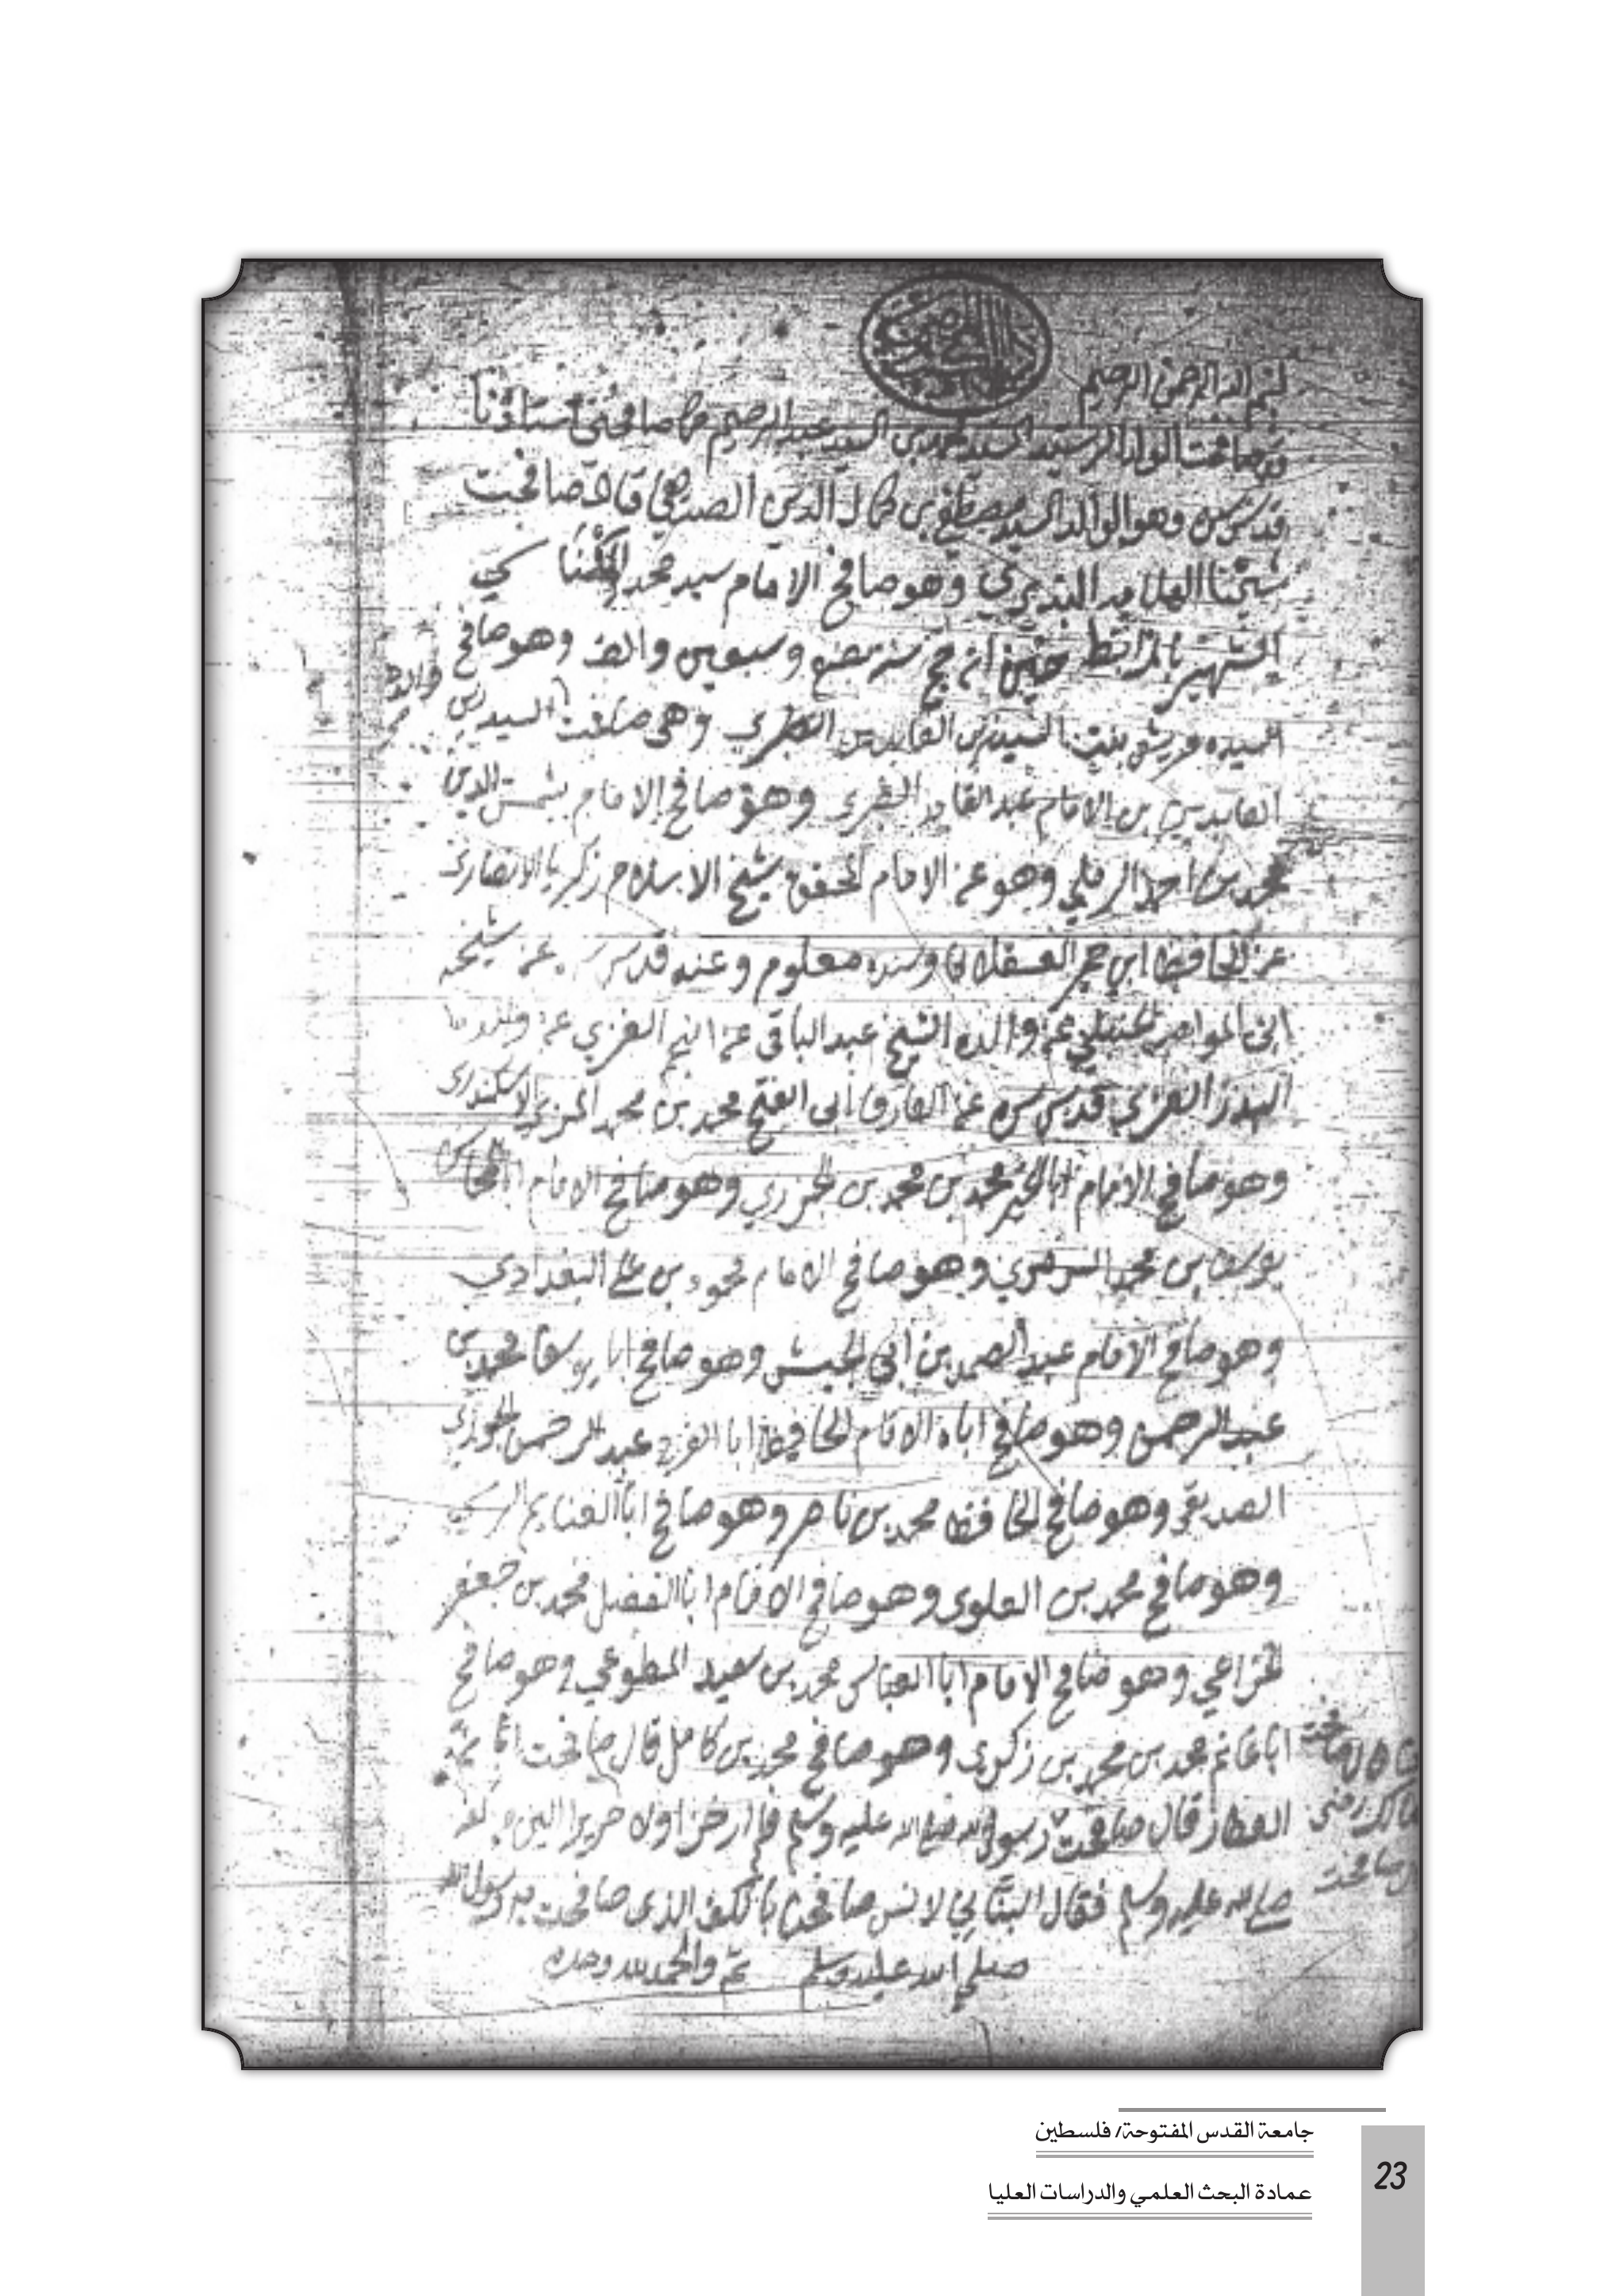 بسم الله الرحمن الرحيم
السيد محمد بن السيد عبد الرحيم كما صافحني استاذنا
وهو الوالد السيد مصطفى بن كمال الدين الصديقي قال صافحت
شيخنا وهو صافح الامام سيد محمد
الشهير حج سنة بضع وسبعين والف وهو صافح
والده
السيده قريش بنت السيد الطبري وهي صافحت السيد زين
العابدين بن الامام عبد القادر الطبري وهو صافح الامام شمس الدين
محمد بن احمد الرملي وهو عن الامام المحقق شيخ الاسلام زكريا الانصاري
عن الحافظ ابن حجر العسقلاني وسنده معلوم وعنه قدس سره عن شيخه
ابي المواهب الحنبلي عن والده الشيخ عبد الباقي عن النجم الغزي عن والده
البدر الغزي قدس سره عن العارف ابي الفتح محمد بن محمد المزي الاسكندري
وهو صافح الامام ابا الخير محمد بن محمد بن الجزري وهو صافح الامام ابا المحاسن
يوسف بن محمد السرمري وهو صافح الامام محمود بن علي البغدادي
وهو صافح الامام عبد الصمد بن ابي الجيش وهو صافح ابا يوسف محمد بن
عبد الرحمن وهو صافح اباه الامام الحافظ ابا الفرج عبد الرحمن الجوزي
الصديقي وهو صافح الحافظ محمد بن ناصر وهو صافح ابا الغنايم
وهو صافح محمد بن العلوي وهو صافح الامام ابا الفضل محمد بن جعفر
الخزاعي وهو صافح الامام ابا العباس محمد بن سعيد المطوعي وهو صافح
ابا غانم محمد بن محمد بن زكريا وهو صافح محمد بن كامل قال صافحت ابان
العطار قال صافحت رسول الله صلى الله عليه وسلم فلم ار خزا ولا حريرا الين من كف
صلى الله عليه وسلم فقال البناني لانس صافحنا بالكف الذي صافحت به رسول الله
صلى الله عليه وسلم تم والحمد لله وحده
جامعة القدس المفتوحة/ فلسطين
عمادة البحث العلمي والدراسات العليا
23